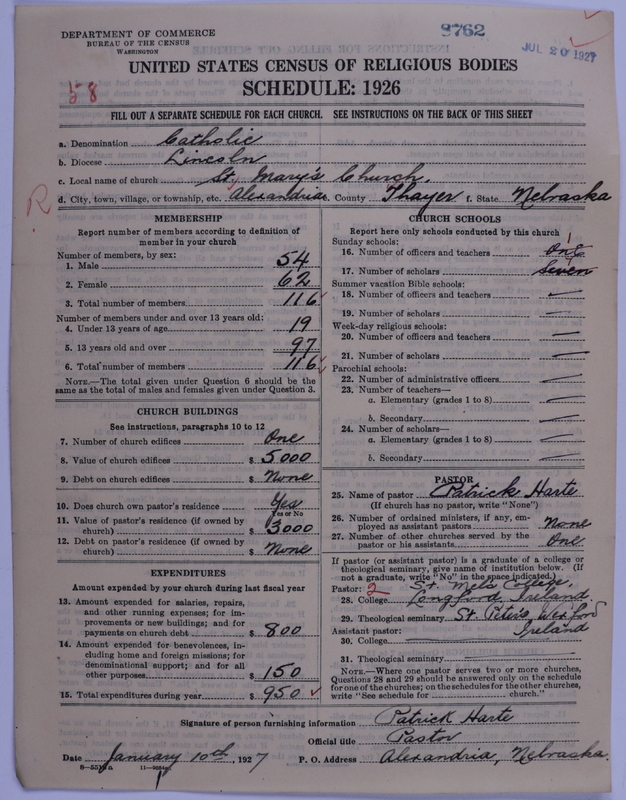 DEPARTMENT OF COMMERCE
BUREAU OF THE CENSUS
WASHINGTON
8762
JUL 20 1927
UNITED STATES CENSUS OF RELIGIOUS BODIES
SCHEDULE: 1926
58
FILL OUT A SEPARATE SCHEDULE FOR EACH CHURCH. SEE INSTRUCTIONS ON THE BACK OF THIS SHEET
a. Denomination Catholic
b. Diocese Lincoln
c. Local name of church St Mary's Church.
R
d. City, town, village, or township, etc. Alexandria e. County Thayer f. State Nebraska
MEMBERSHIP
Report number of members according to definition of
member in your church
Number of members, by sex:
1. Male 54
2. Female 62
3. Total number of members 116
Number of members under and over 13 years old:
4. Under 13 years of age 19
5. 13 years old and over 97
6. Total number of members 116
NOTE.—The total given under Question 6 should be
same as the total of males and females given under Question 3.
CHURCH BUILDINGS
See instructions, paragraphs 10 to 12
7. Number of church edifices One
8. Value of church edifices $ 5000
9. Debt on church edifices $ None
10. Does church own pastor's residence Yes
Yes or No
11. Value of pastor's residence (if owned by
church) $ 3000
12. Debt on pastor's residence (if owned by
church) $ None
EXPENDITURES
Amount expended by your church during last fiscal year
13. Amount expended for salaries, repairs,
and other running expenses; for im-
provements or new buildings; and for
payments on church debt $ 800
14. Amount expended for benevolences, in-
cluding home and foreign missions; for
denominational support; and for all
other purposes $ 150
15. Total expenditures during year $ 950
CHURCH SCHOOLS
Report here only schools conducted by this church
Sunday schools:
16. Number of officers and teachers One 1
17. Number of scholars Seven
Summer vacation Bible schools:
18. Number of officers and teachers
19. Number of scholars
Week-day religious schools:
20. Number of officers and teachers
21. Number of scholars
Parochial schools:
22. Number of administrative officers
23. Number of teachers—
a. Elementary (grades 1 to 8)
b. Secondary
24. Number of scholars—
a. Elementary (grades 1 to 8)
b. Secondary
PASTOR
25. Name of pastor Patrick Harte
(If church has no pastor, write "None")
26. Number of ordained ministers, if any, em-
ployed as assistant pastors None
27. Number of other churches served by the
pastor or his assistants One
If pastor (or assistant pastor) is a graduate of a college or
theological seminary, give name of institution below. (If
not a graduate, write "No" in the space indicated.)
Pastor: 2 St. Mels College,
28. College Longford, Ireland.
29. Theological seminary St. Peters, Wexford
Assistant pastor: Ireland
30. College
31. Theological seminary
NOTE.—Where one pastor serves two or more churches,
Questions 28 and 29 should be answered only on the schedule
for one of the churches; on the schedules for the other churches,
write "See schedule for church."
Signature of person furnishing information Patrick Harte
Official title Pastor
Date January 10th, 1927 P. O. Address Alexandria, Nebraska.